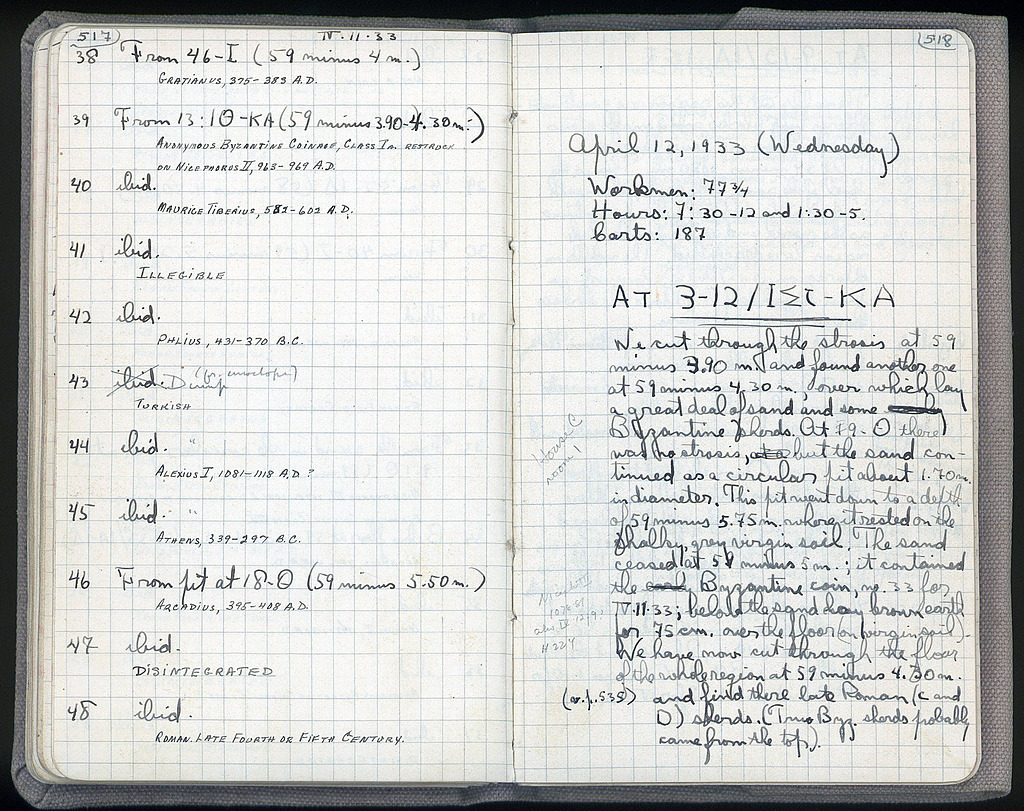 517
IV.11.33
38 From 46-I (59 minus 4 m.)
GRATIANUS, 375-383 A.D.
39 From 13:1Θ-KA (59 minus 3.90-4.30 m.)
ANONYMOUS BYZANTINE COINAGE, CLASS Ia. RESTRUCK
ON NICEPHORUS II, 963-969 A.D.
40 ibid.
MAURICE TIBERIUS, 582-602 A.D.
41 ibid.
ILLEGIBLE
42 ibid.
PHLIUS, 431-370 B.C.
43 ibid. Dump (fr. envelope)
TURKISH
44 ibid. "
ALEXIUS I, 1081-1118 A.D.?
45 ibid. "
ATHENS, 339-297 B.C.
46 From pit at 18-Θ (59 minus 5.50 m.)
ARCADIUS, 395-408 A.D.
47 ibid.
DISINTEGRATED
48 ibid.
ROMAN. LATE FOURTH OR FIFTH CENTURY.
518
April 12, 1933 (Wednesday)
Workmen: 77 3/4
Hours: 7:30-12 and 1:30-5.
Carts: 187
AT 3-12/IΣΤ-KA
We cut through the strosis at 59
minus 3.90 m. and found another one
at 59 minus 4.30 m., over which lay
a great deal of sand and some
Byzantine sherds. At 19-Θ there
was no strosis, but the sand con-
tinued as a circular pit about 1.70 m.
in diameter. This pit went down to a depth
of 59 minus 5.75 m. where it rested on the
chalky, grey virgin soil. The sand
ceased at 59 minus 5 m.; it contained
the Byzantine coin, no. 33 for
IV.11.33; below the sand lay brown earth
for 75 cm. over the floor (on virgin soil).
We have now cut through the floor
of the whole region at 59 minus 4.30 m.
(v. p. 535) and find there late Roman (C and
D) sherds. (True Byz. sherds probably
came from the top).
House C
room 1
H 224